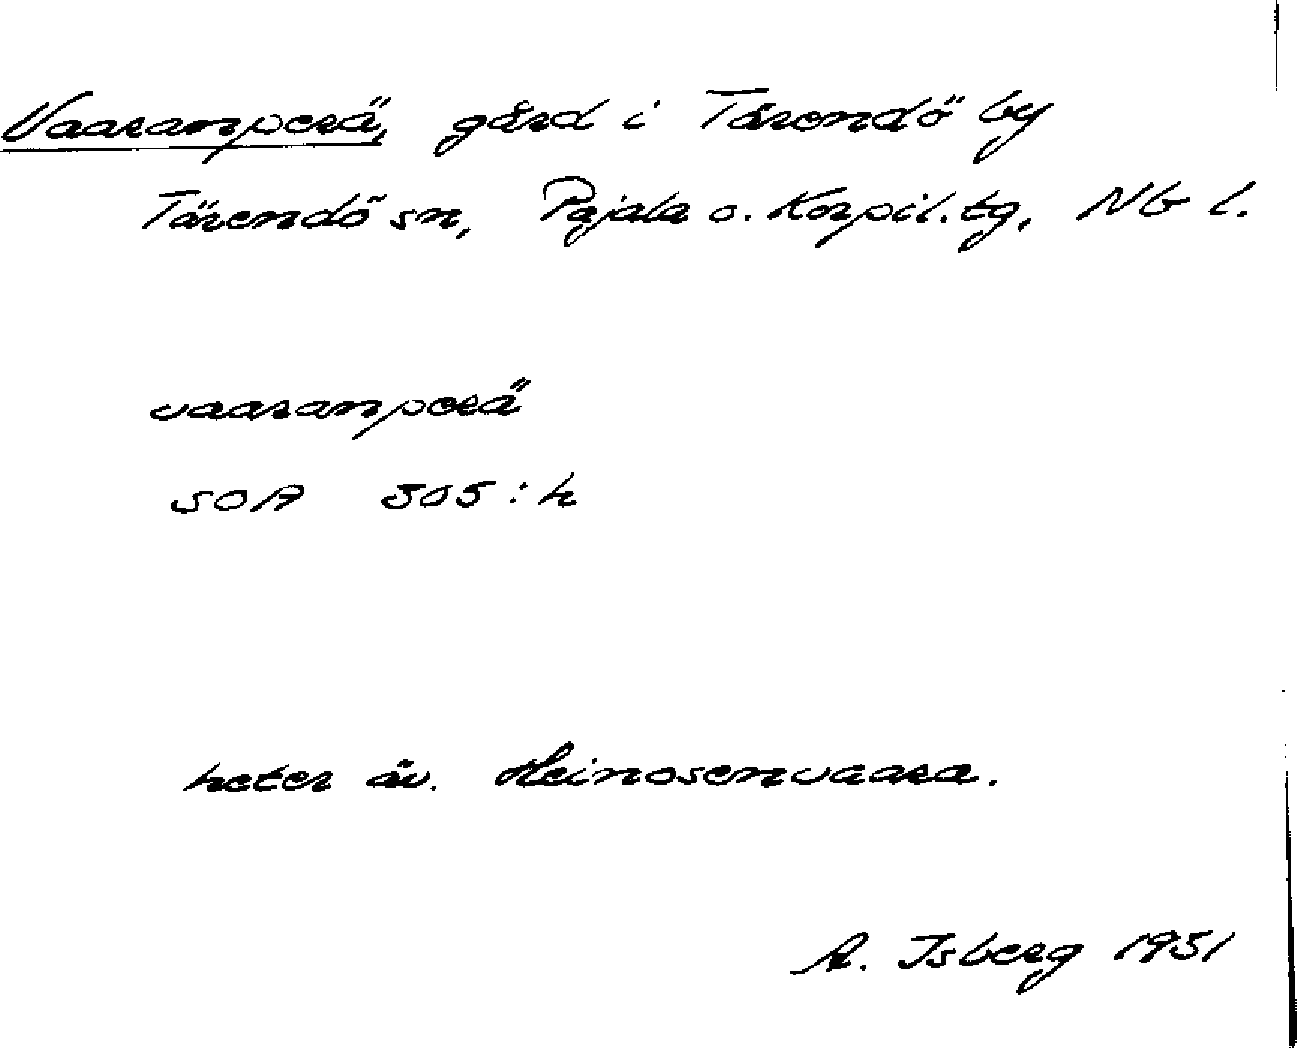 Vaaranperä, gård i Tärendö by
Tärendö sn, Pajala o. Korpil. tg, Nb l.
vaaranperä
SOA 305:h
heter äv. Heinosenvaara.
A. Isberg 1951